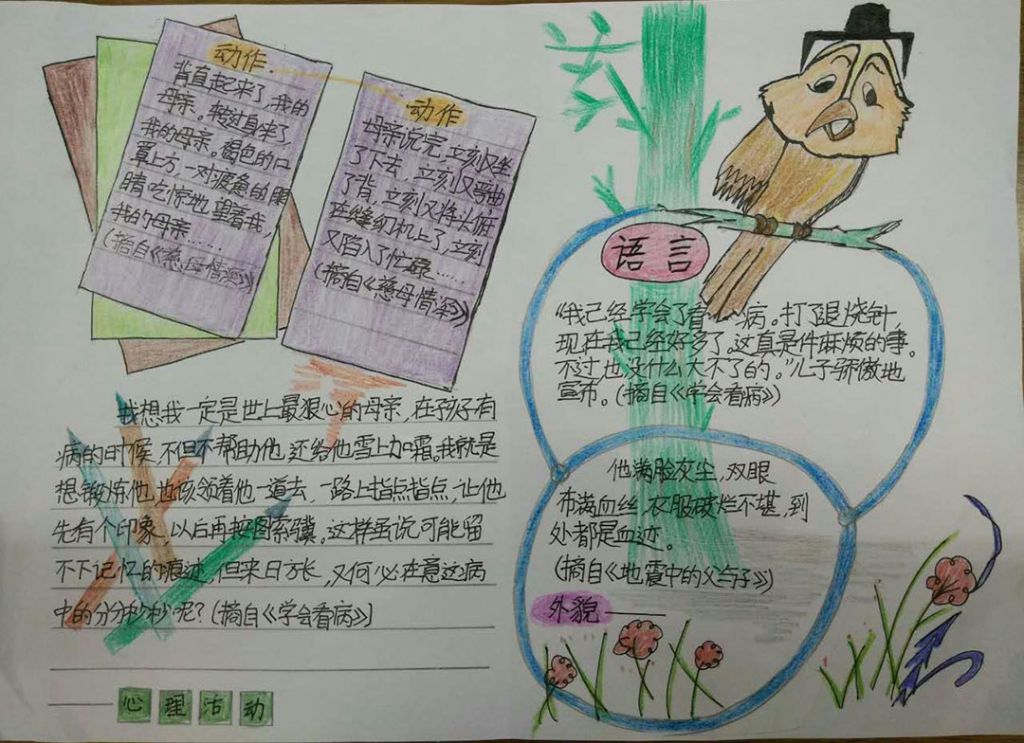 动作
背直起来了,我的
母亲。转过身来了,
我的母亲。褐色的口
罩上方,一对疲惫的眼
睛吃惊地望着我,
我的母亲……
(摘自《慈母情深》)
动作
母亲说完,立刻又坐
了下去,立刻又弯曲
了背,立刻又将头俯
在缝纫机上了,立刻
又陷入了忙碌……
(摘自《慈母情深》)
我想我一定是世上最狠心的母亲,在孩子有
病的时候,不但不帮助他,还给他雪上加霜。我就是
想锻炼他,也该领着他一道去,一路上指点指点,让他
先有个印象,以后再按图索骥。这样虽说可能留
不下记忆的痕迹,但来日方长,又何必在意这病
中的分分秒秒呢?(摘自《学会看病》)
心理活动
语言
“我已经学会了看病。打了退烧针,
现在我已经好多了。这真是件麻烦的事。
不过,也没什么大不了的。”儿子骄傲地
宣布。(摘自《学会看病》)
他满脸灰尘,双眼
布满血丝,衣服破烂不堪,到
处都是血迹。
(摘自《地震中的父与子》)
外貌